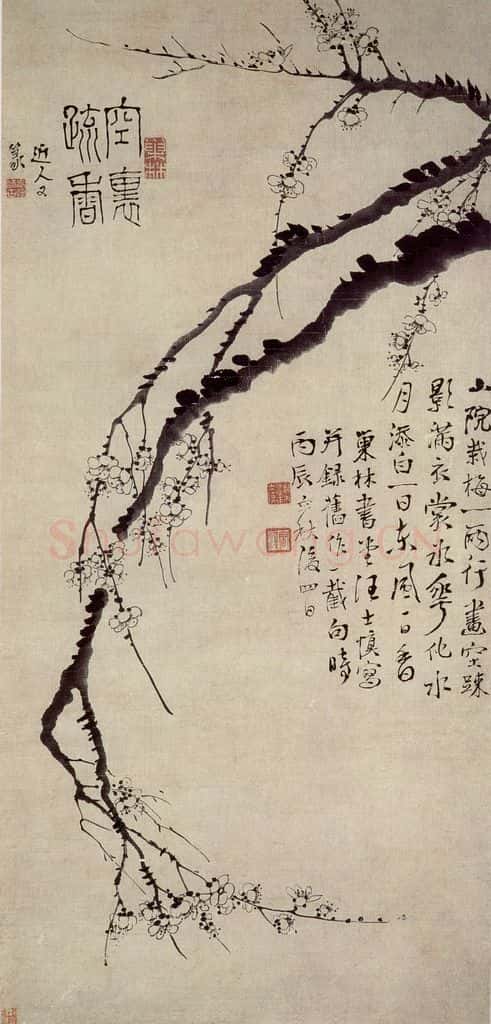 小院栽梅一兩行畫空疎
影滿衣裳冰華化水
月添白一日東風一日香
巢林書堂汪士慎寫
并錄舊作一截句時
丙辰後四日
空裏
疏香
近人
篆
Shufawang.CN